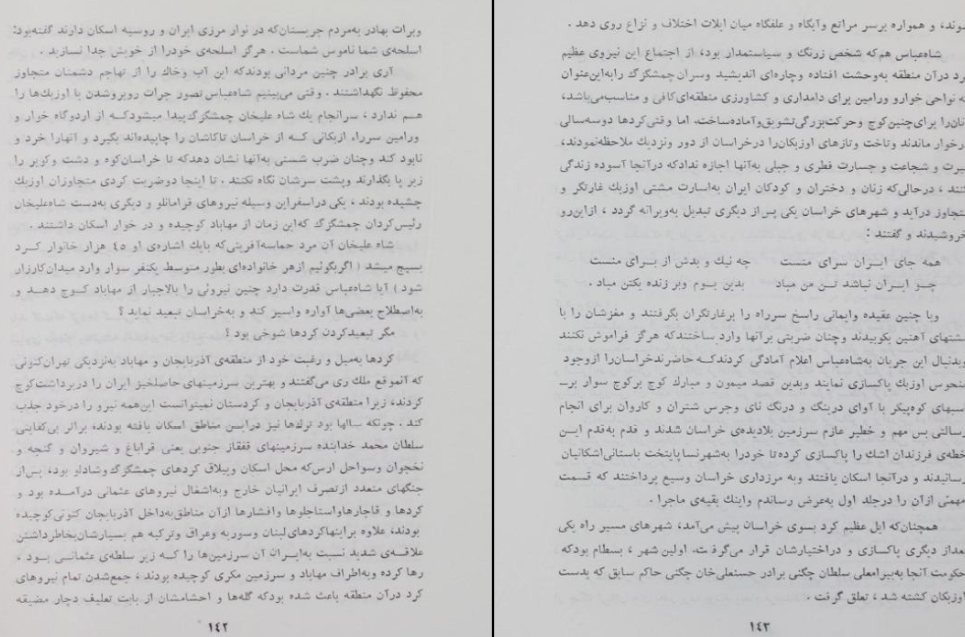 وبرات بهادر به‌مردم جربستان‌که در نوار مرزی ایران و روسیه اسکان دارند گفته‌بود:
اسلحه‌ی شما ناموس شماست . هرگز اسلحه‌ی خودرا از خویش جدا نسازید .
آری برادر چنین مردانی بودندکه این آب وخاك را از تهاجم دشمنان متجاوز
محفوظ نگهداشتند . وقتی می‌بینیم شاه‌عباس تصور جرات روبروشدن با اوزبك‌ها را
هم ندارد ، سرانجام یك شاه علیخان چمشگزك‌پیدا میشودکه از اردوگاه خوار و
ورامین سرراه ازبکانی کـه از خراسان تاکاشان را چاپیده‌اند بگیرد و آنهارا خرد و
نابود کند وچنان ضرب شستی به‌آنها نشان دهدکه تا خراسان‌کوه و دشت وکویر را
زیر پا بگذارند وپشت سرشان نگاه نکنند . تا اینجا دوضربت کردی متجاوزان اوزبك
چشیده بودند ، یکی دراسفراین وسیله نیروهای قرامانلو و دیگری به‌دست شاه‌علیخان
رئیس‌کردان چمشگزك که‌این زمان از مهاباد کوچیده و در خوار اسکان داشتند .
شاه علیخان آن مرد حماسه‌آفرینی‌که بایك اشاره‌ی او ٤٥ هزار خانوار کـرد
بسیج میشد ( اگربگوئیم ازهر خانواده‌ای بطور متوسط یکنفر سوار وارد میدان‌کارزار
شود ) آیا شاه‌عباس قدرت دارد چنین نیروئی را بالاجبار از مهاباد کـوچ دهـد و
به‌اصطلاح بعضی‌ها آواره واسیر کند و به‌خراسان تبعید نماید ؟
مگر تبعیدکردن کردها شوخی بود ؟
کردها به‌میل و رغبت خود از منطقه‌ی آذربایجان و مهاباد به‌نزدیکی تهران‌کنونی
که آنموقع ملك ری می‌گفتند و بهترین سرزمینهای حاصلخیز ایران را دربرداشت‌کوچ
کردند، زیرا منطقه‌ی آذربایجان و کردستان نمیتوانست این‌همه نیرو را درخود جذب
کند . چونکه سالها بود ترك‌ها نیز دراین مناطق اسکان یافته بودند، براثر بی‌کفایتی
سلطان محمد خدابنده سرزمینهای قفقاز جنوبی یعنی قراباغ و شیروان و گنجه و
نخجوان وسواحل ارس‌که محل اسکان وییلاق کردهای چمشگزك‌وشادلو بود، پس‌از
جنگهای متعدد ازتصرف ایرانیان خارج وبه‌اشغال نیروهای عثمانی درآمـده بود و
کردها و قاجارهاواستاجلوها وافشارها ازآن مناطق‌به‌داخل آذربایجان کنونی‌کوچیده
بودند، علاوه براینهاکردهای‌لبنان وسوریه وعراق وترکیه هم بسیارشان‌بخاطرداشتن
علاقـه‌ی شدید نسبت به‌ایـران آن سرزمین‌ها را کـه زیر سلطه‌ی عثمانـی بـود ،
رها کرده وبه‌اطراف مهاباد و سرزمین مکری کوچیده بودند ، جمع‌شدن تمام نیروهای
کرد درآن منطقه باعث شده بودکه گله‌ها و احشامشان از بابت تعلیف دچار مضیقه
١٤٢
شوند، و همواره برسر مراتع وآبگاه و علفگاه میان ایلات اختلاف و نزاع روی دهد .
شاه‌عباس هم‌که شخص زرنگ و سیاستمدار بود، از اجتماع این نیروی عظیم
کرد درآن منطقه به‌وحشت افتاده وچاره‌ای اندیشید وسران‌چمشگزك رابه‌این‌عنوان
که نواحی خوارو ورامین برای دامداری و کشاورزی منطقه‌ای‌کافی و مناسب‌می‌باشد،
آنان‌را برای‌چنین‌کوچ وحرکت‌بزرگی‌تشویق‌وآماده‌ساخت. اما وقتی‌کردها دوسه‌سالی
درخوار ماندند وتاخت وتازهای اوزبکان‌را درخراسان از دور ونزدیك ملاحظه‌نمودند،
غیرت و شجاعت و جسارت فطری و جبلی به‌آنها اجازه ندادکه درآنجا آسوده زندگی
کنند ، درحالی‌که زنان و دختران و کودکان ایران به‌اسارت مشتی اوزبك غارتگر و
متجاوز درآید و شهرهای خراسان یکی پس‌از دیگری تبدیل به‌ویرانه گردد ، ازاین‌رو
خروشیدند و گفتند :
همه جای ایـران سرای منست چه نیك و بدش از بـرای منست
چـو ایـران نباشد تـن من مباد بدین بـوم وبر زنده یکتن مباد .
وبا چنین عقیده وایمانی راسخ سرراه را برغارتگران بگرفتند و مغزشان را با
مشتهای آهنین بکوبیدند وچنان ضربتی برآنها وارد ساختندکه هرگز فراموش نکنند
وبدنبال این جریان به‌شاه‌عباس اعلام آمادگی کردندکـه حاضرندخراسان‌را ازوجود
منحوس اوزبك پاکسازی نمایند وبدین قصد میمون و مبارك کوچ برکوچ سوار بر-
اسبهای کوه‌پیکر با آوای درینگ و درنگ نای وجرس شتران و کاروان برای انجام
رسالتی بس مهم و خطیر عازم سرزمین بلادیده‌ی خراسان شدند و قدم به‌قدم ایـن
خطه‌ی فرزندان اشك را پاکسازی کرده‌تا خودرا به‌شهرنساپایتخت باستانی‌اشکانیان
رسانیدند و درآنجا اسکان یافتند وبه مرزداری خراسان وسیع پرداختند که قسمت
مهمی ازآن را درجلد اول به‌عرض رساندم واینك بقیه‌ی ماجرا .
همچنان‌که ایل عظیم کرد بسوی خراسان پیش می‌آمد، شهرهای مسیر راه یکی
بعداز دیگری پاکسازی و دراختیارشان قرار می‌گرفـت. اولین شهر ، بسطام بودکه
حکومت آنجا به‌بیرامعلی سلطان چگنی برادر حسنعلی‌خان چگنی حاکم سابق که بدست
اوزبکان کشته شد ، تعلق گرفت .
١٤٣